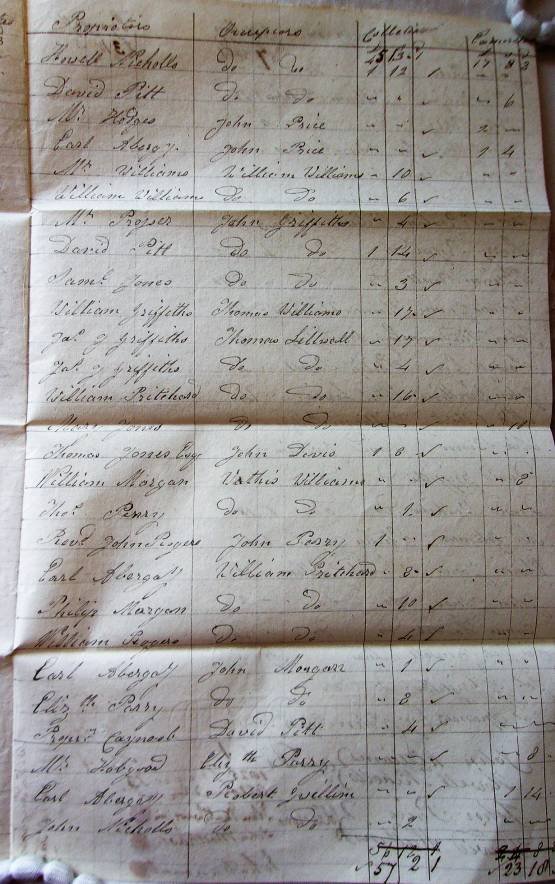 Proprietors Occupiers Collected
Howell Nicholls do do 1 12
David Pitt do do " " " 6
Mr Hodges John Price " " 2 "
Earl Abergy. John Price " " 1 4
Mr Williams William Williams " 10 " "
William Williams do do " 6 " "
Mr Prosser John Griffiths " 4 " "
David Pitt do do 1 14 " "
Saml Jones do do " 3 " "
William Griffiths Thomas Williams " 17 " "
Jas. g Griffiths Thomas Lillwall " 17 " "
Jas. g Griffiths do do " 4 " "
William Pritchard do do " 16 " "
Jones do do " "
Thomas Jones Esqr John Davis 1 " "
William Morgan Williams " " " 8
Thos. Perry do do " 1 " "
Revd. John Rogers John Perry 1 " " "
Earl Abergay William Pritchard " 8 " "
Philip Morgan do do " 10 " "
William Rogers do do " 4 " "
Earl Abergay John Morgan " 1 " "
Elizth Perry do do " 8 " "
David Pitt " 4 " "
Mr Hobgood Elizth Perry " " " 8
Earl Abergay Robert Gwillim " " 1 14
John Nicholls do do " 2
57 2 1 23 18